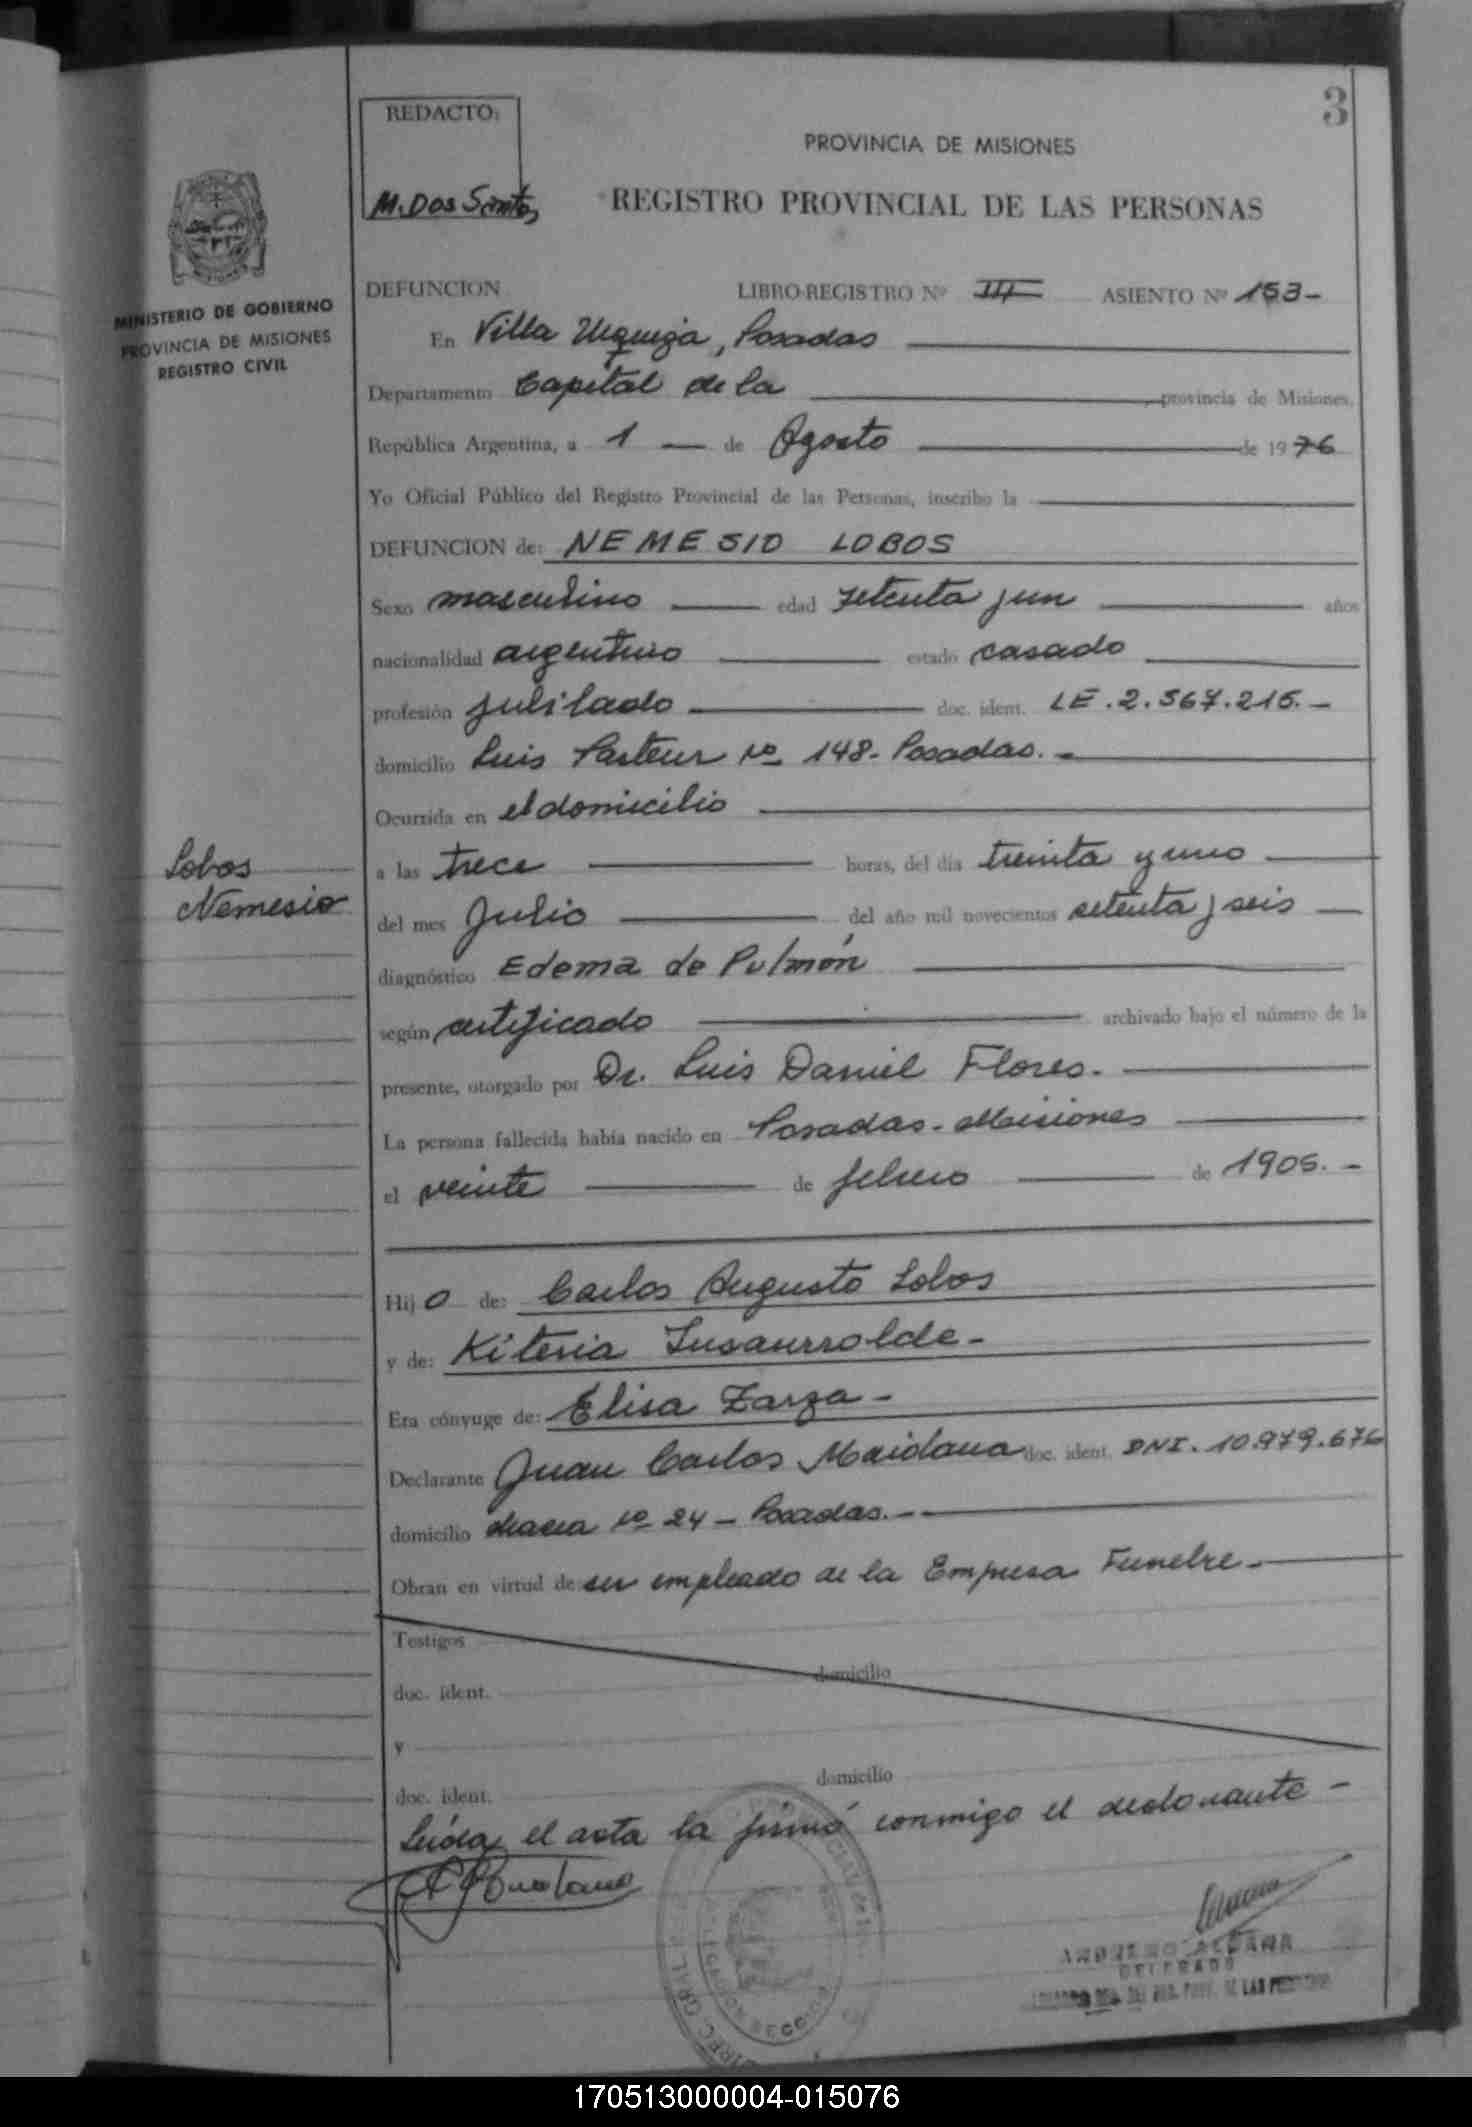 3
REDACTO:
M. Dos Santos
PROVINCIA DE MISIONES
REGISTRO PROVINCIAL DE LAS PERSONAS
MINISTERIO DE GOBIERNO
PROVINCIA DE MISIONES
REGISTRO CIVIL
DEFUNCION LIBRO-REGISTRO Nº III ASIENTO Nº 153-
En Villa Urquiza, Posadas
Departamento Capital de la provincia de Misiones,
República Argentina, a 1 de Agosto de 1976
Yo Oficial Público del Registro Provincial de las Personas, inscribo la
DEFUNCION de: NEMESIO LOBOS
Sexo masculino edad setenta y un años
nacionalidad argentino estado casado
profesión jubilado doc. ident. LE. 2.567.215.-
domicilio Luis Pasteur Nº 148- Posadas.-
Ocurrida en el domicilio
Lobos
Nemesio
a las trece horas, del día treinta y uno
del mes Julio del año mil novecientos setenta y seis
diagnóstico Edema de Pulmón
según certificado archivado bajo el número de la
presente, otorgado por Dr. Luis Daniel Flores.-
La persona fallecida había nacido en Posadas-Misiones
el veinte de febrero de 1905.-
Hijo de: Carlos Augusto Lobos
y de: Kiteria Insaurralde-
Era cónyuge de: Elisa Zarza-
Declarante Juan Carlos Maidana doc. ident. DNI. 10.979.676
domicilio chacra Nº 24 - Posadas.-
Obran en virtud de ser empleado de la Empresa Funebre-
Testigos
doc. ident. domicilio
y
doc. ident. domicilio
Leída el acta la firmó conmigo el declarante-
DELEGADO
170513000004-015076